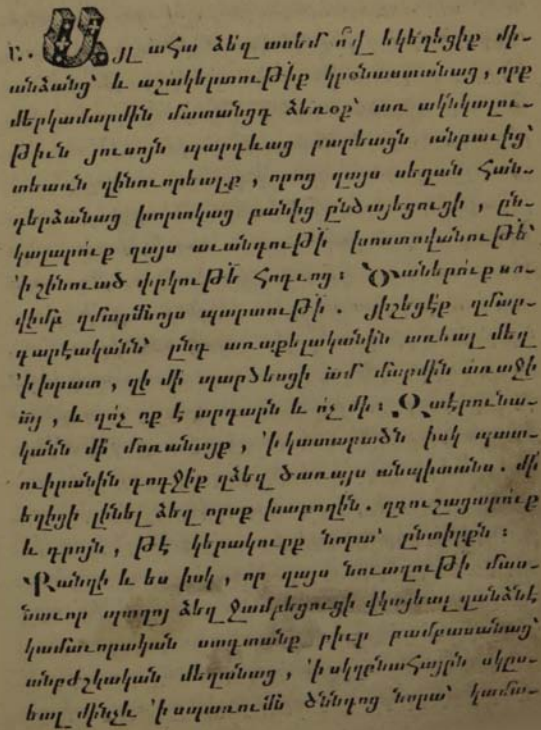 Այլ ահա ձեզ ասեմ ո՛վ եկեղեցիք մի֊
անձանց՝ և աշակերտութիք կրօնաստանաց, որք
մերկամարմին մատանցդ ձեռօք՝ առ ակնկալու֊
թիւն յուսոյն պարգևաց բարեացն անբաւից՝
տեառն զինուորեալք, որոց զայս սեղան հան֊
դերձանաց խորտկաց բանից ընծայեցուցի, ըն֊
կալարո՛ւք զայս աւանդութի խոստովանութե՝
՚ի շինուած փրկութե հոգւոց։ Ծաներո՛ւք սո֊
վիմբ զմարմնոյս պարտութի. յիշեցէք զմար֊
գարէականն՝ ընդ առաքելականին առեալ մեզ
՚ի խրատ, զի մի պարծեսցի ամ մարմին առաջի
այ, և զոչ ոք է արդարն և ոչ մի։ Զտէրունա֊
կանն մի մոռանայք, ՚ի կատարածն իսկ պատ֊
ուիրանին գոգջիք զձեզ ծառայս անպիտանս. մի
եղիցի լինել ձեզ որսք խաբողին. զզուշացարո՛ւք
և գրոյն, թէ կերակուրք նորա՝ ընտիրքն։
Քանզի և ես իսկ, որ զայս նուաղութի մաս֊
նաւոր պտղոյ ձեզ ջամբեցուցի վկայեալ զանձնէ
կամաւորական ստգտանք բիւր բամբասանաց՝
անբժշկական մեղանաց, ՚ի սկզբնահայրն սկըս֊
եալ մինչև ՚ի սպառումն ծննդոց նորա՝ կամա֊